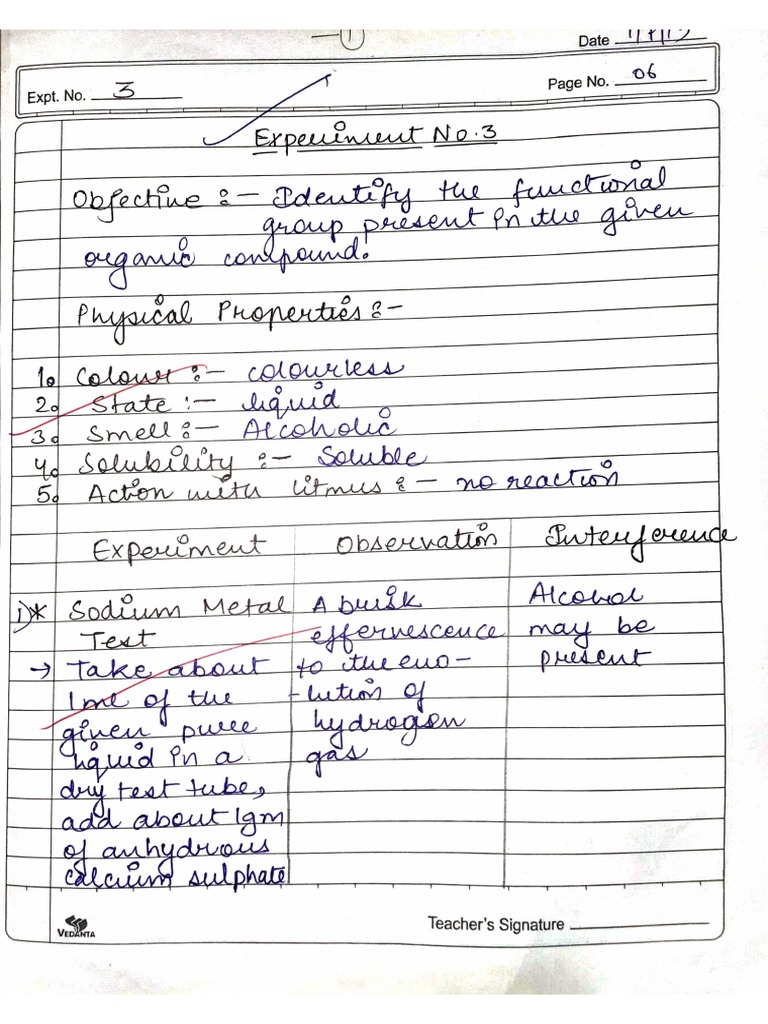 1
Date
Expt. No. 3
Page No. 06
Experiment No.3
Objective :- Identify the functional
group present in the given
organic compound.
Physical Properties :-
1. Colour :- colourless
2. State :- liquid
3. Smell :- Alcoholic
4. Solubility :- Soluble
5. Action with litmus :- no reaction
Experiment Observation Interference
i)* Sodium Metal A brisk Alcohol
Test effervescence may be
→ Take about to the evo- present
1ml of the -lution of
given pure hydrogen
liquid in a gas
dry test tube,
add about 1gm
of anhydrous
calcium sulphate
VEDANTA
Teacher's Signature